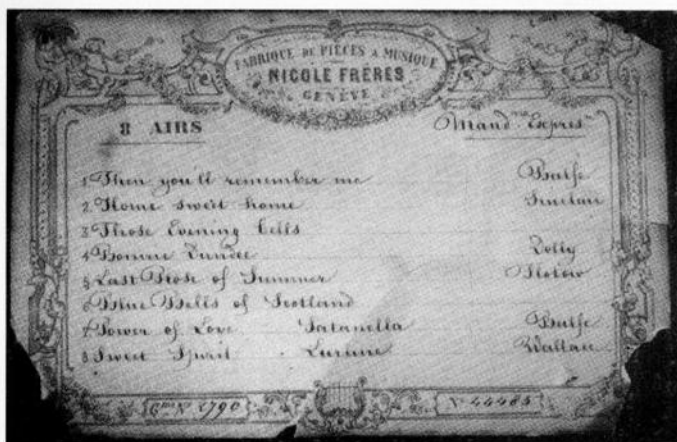 FABRIQUE DE PIÈCES A MUSIQUE
NICOLE FRÈRES
GENÈVE
8 AIRS
Mand.ne Expres.
1 Then you'll remember me Balfe
2 Home sweet home Sinclair
3 Those Evening bells
4 Bonnie Dundee Dolly
5 Last Rose of Summer Flotow
6 Blue Bells of Scotland
7 Power of Love Satanella Balfe
8 Sweet Spirit Lurline Wallace
Gme No 2790 No 44464